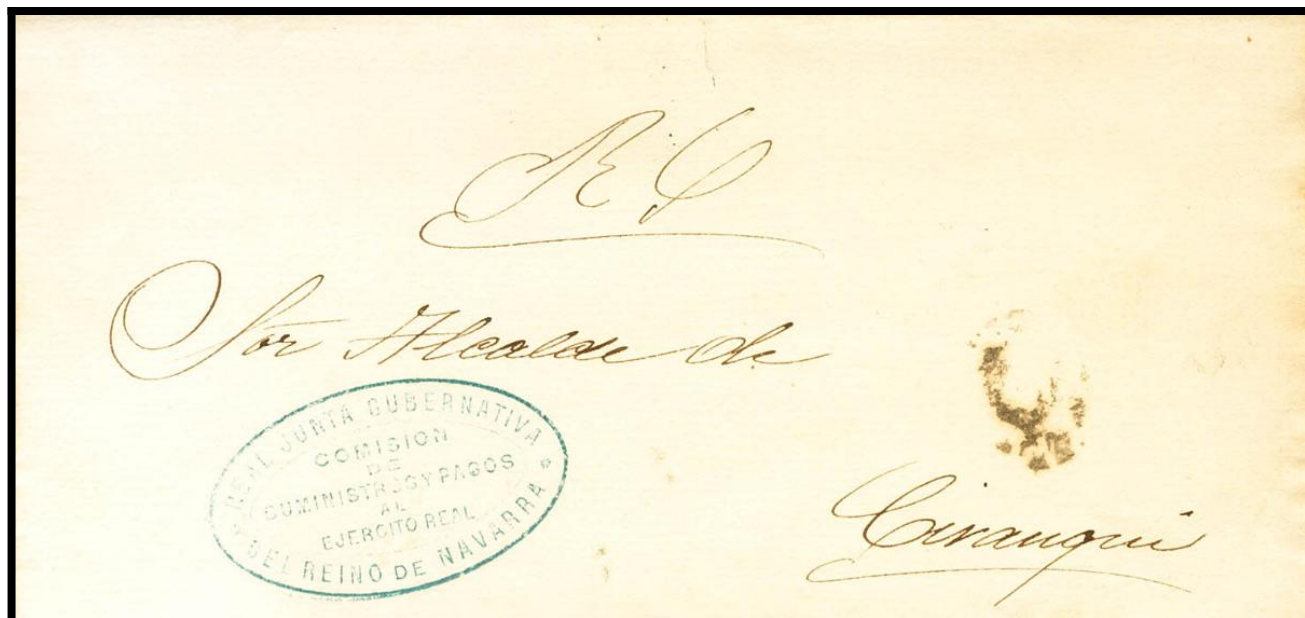 R. C
Sor Alcalde de
REAL JUNTA GUBERNATIVA
COMISION
DE
SUMINISTROS Y PAGOS
AL
EJERCITO REAL
DEL REINO DE NAVARRA
Cirauqui